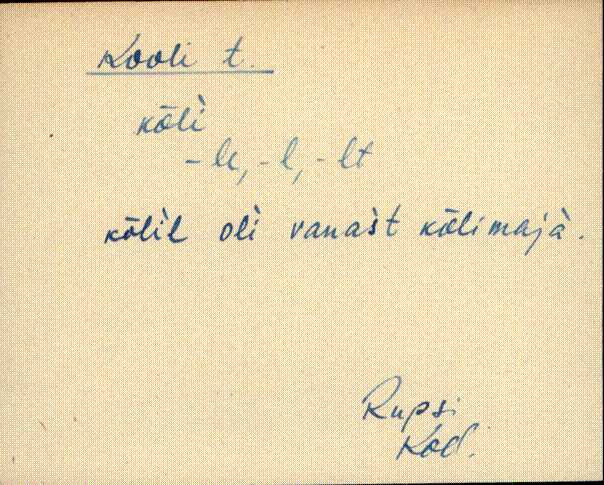 Kooli t.
kȭlì
-le, -l, -lt
kȭlìl oli vanàst kȭlimajà.
Rupsi
Kod.